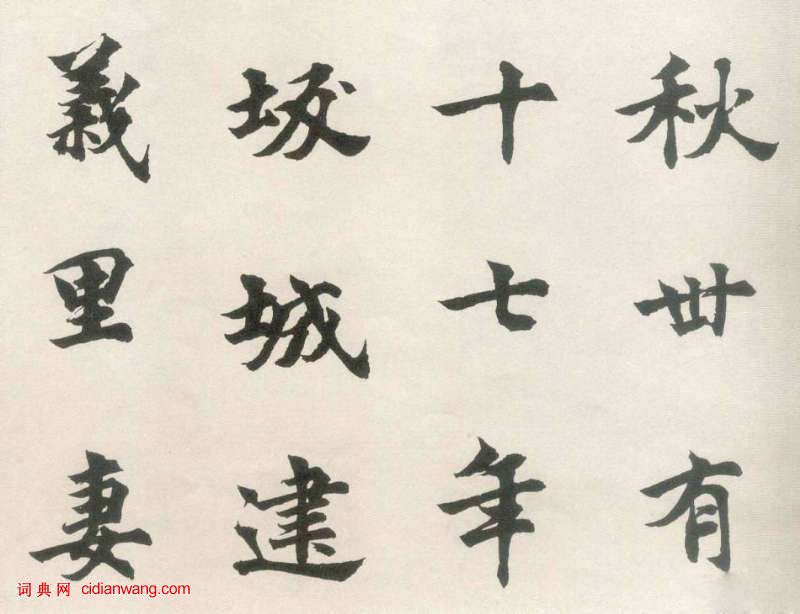 秋丗有
十七年
城建
義里妻
词典网 cidianwang.com